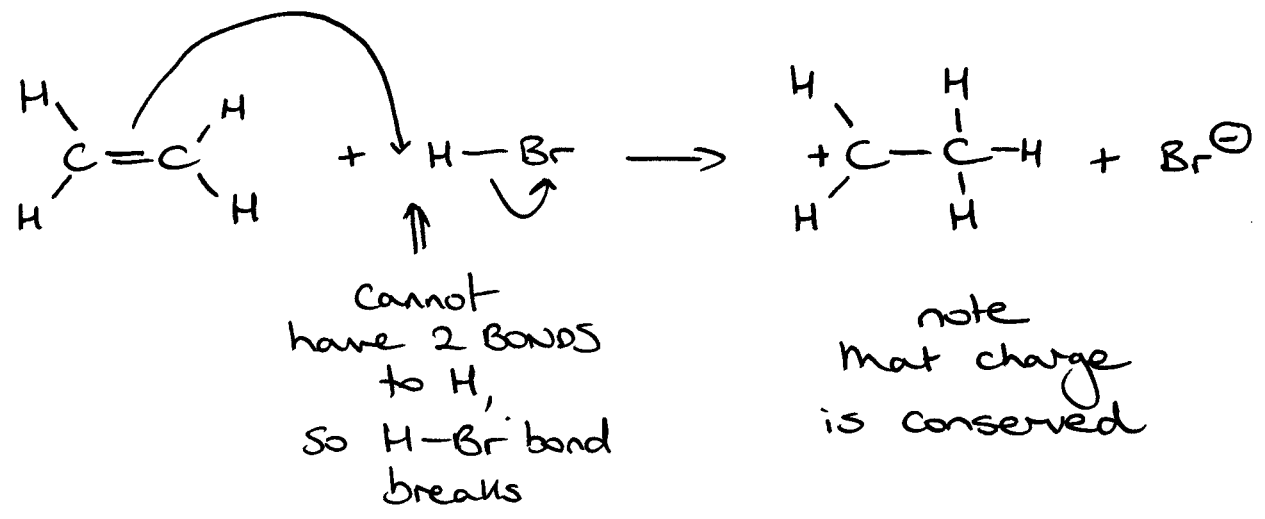 H H H H
C=C + H—Br ⟶ +C—C—H + Br⊖
H H H H
⇑
cannot
have 2 BONDS
to H,
so H—Br bond
breaks
note
that charge
is conserved